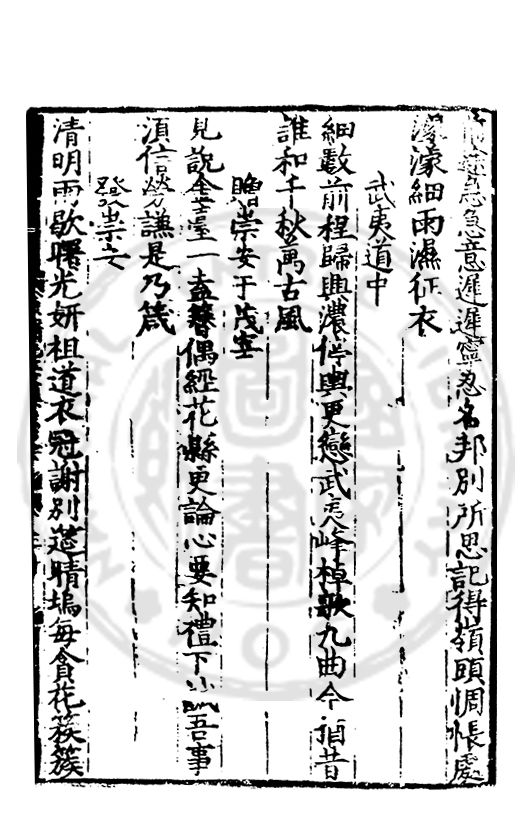 遲遲急急意遲遲寧忍名邦別所思記得嶺頭惆悵處
濛濛細雨濕征衣
武夷道中
細數前程歸興濃停輿更戀武夷峰棹歌九曲今猶昔
誰和千秋萬古風
贈崇安于茂宰
見說金臺一盍簪偶經花縣更論心要知禮下吾事
須信勞謙是乃箴
發崇安
清明雨歇曙光妍祖道衣冠謝別筵晴塢每貪花簇簇